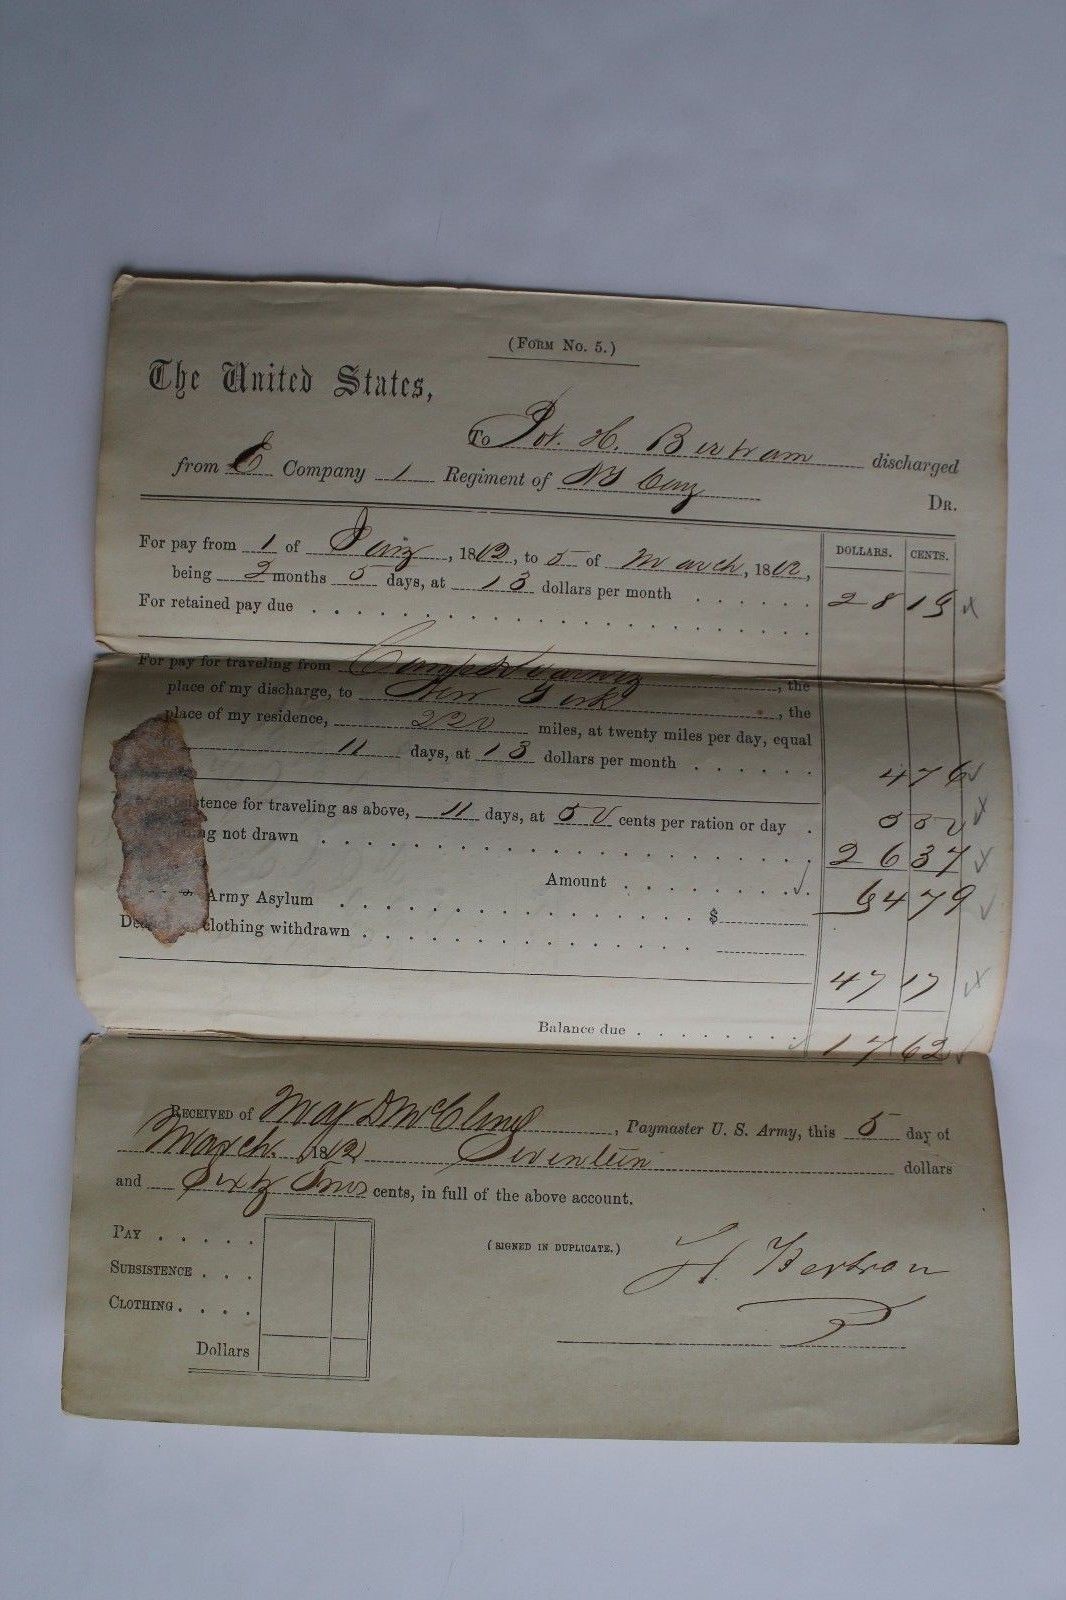 (Form No. 5.)
The United States,
To Pvt. H. Bertram discharged
from E Company 1 Regiment of NY Cavy
Dr.
DOLLARS. CENTS.
For pay from 1 of Jany, 1862, to 5 of March, 1862,
being 2 months 5 days, at 13 dollars per month . . . . . . 28 16
For retained pay due
For pay for traveling from Camp, the
place of my discharge, to New York, the
place of my residence, 220 miles, at twenty miles per day, equal
11 days, at 13 dollars per month . . . . . . 4 76
istence for traveling as above, 11 days, at 50 cents per ration or day . 5 50
ng not drawn 26 37
Amount 64 79
Army Asylum $
clothing withdrawn
47 17
Balance due 17 62
Received of Maj D McClind, Paymaster U. S. Army, this 5 day of
March. 1862 Seventeen dollars
and Sixty Two cents, in full of the above account.
Pay . . . . .
(SIGNED IN DUPLICATE.)
Subsistence . . .
H. Bertram
Clothing . . . .
Dollars